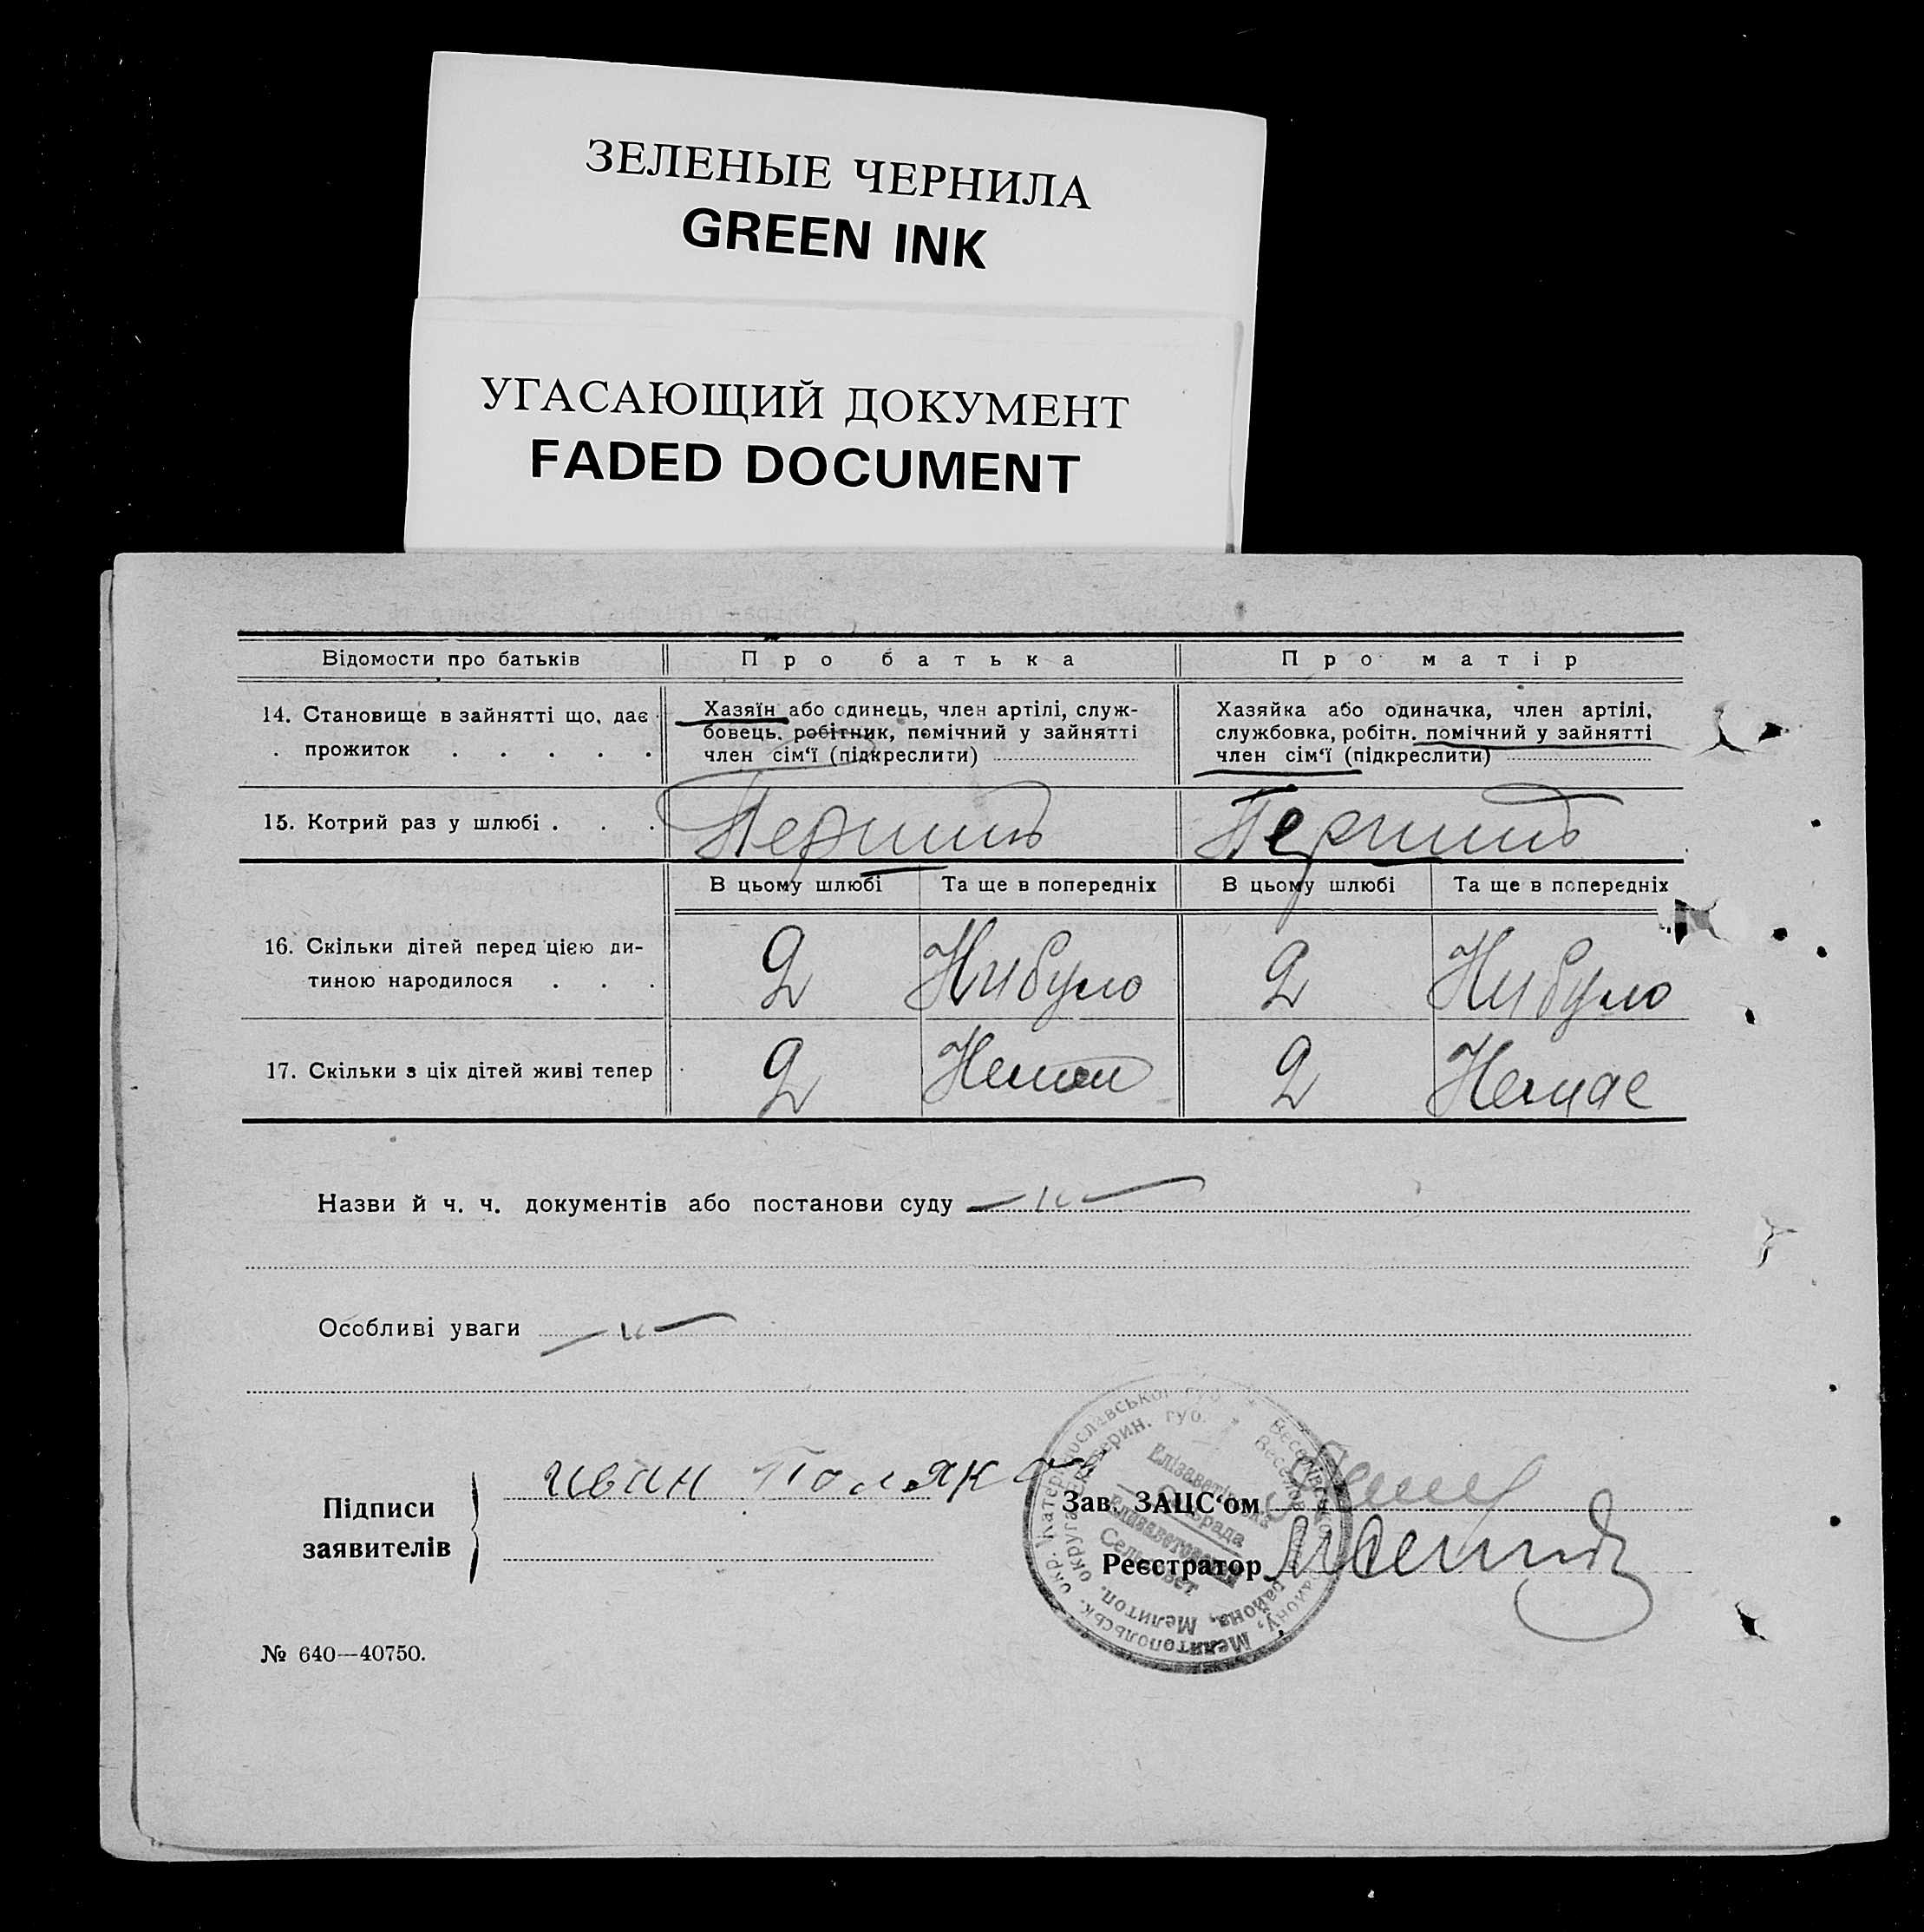 ЗЕЛЕНЫЕ ЧЕРНИЛА
GREEN INK
УГАСАЮЩИЙ ДОКУМЕНТ
FADED DOCUMENT
Відомости про батьків Про батька Про матір
14. Становище в зайнятті що, дає прожиток . . . . .
Хазяїн або одинець, член артілі, служ-
бовець, робітник, помічний у зайнятті
член сім‘ї (підкреслити)
Хазяйка або одиначка, член артілі,
службовка, робітн. помічний у зайнятті
член сім‘ї (підкреслити)
15. Котрий раз у шлюбі . . . Перший Перший
В цьому шлюбі Та ще в попередніх В цьому шлюбі Та ще в попередніх
16. Скільки дітей перед цією ди-
тиною народилося . . .
2 Нибуло 2 Нибуло
17. Скільки з ціх дітей живі тепер 2 2 Немае
Назви й ч. ч. документів або постанови суду — " —
Особливі уваги — " —
Підписи
заявителів
иван Поляков
Зав. ЗАЦС‘ом
Реєстратор
Мелитопольськ. окр. Катеринославської губ. * Веселівськ району,
района, Мелитоп. округа Екатерин. губ. *
Єлізаветівська
Сільрада
Елизаветовский
Сельсовет
№ 640—40750.